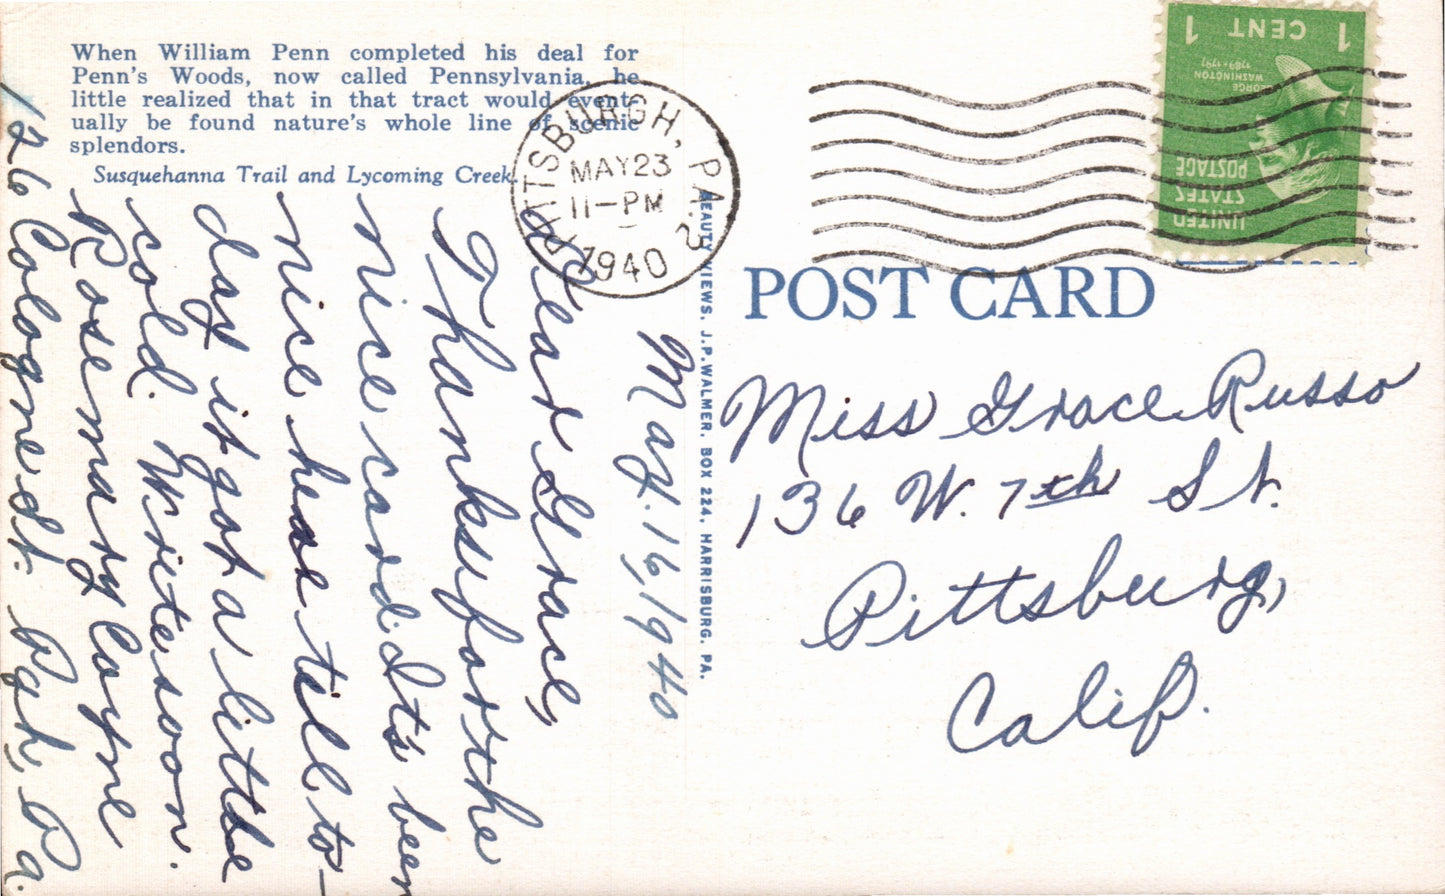 When William Penn completed his deal for
Penn's Woods, now called Pennsylvania, he
little realized that in that tract would event-
ually be found nature's whole line of scenic
splendors.
Susquehanna Trail and Lycoming Creek
PITTSBURGH, PA. 23
MAY 23
11-PM
1940
1 CENT 1
GEORGE
WASHINGTON
1789-1797
UNITED
STATES
POSTAGE
POST CARD
BEAUTY VIEWS. J.P. WALMER. BOX 224, HARRISBURG, PA.
May. 16, 1940
Dear Grace,
Thanks for the
nice card. It's been
nice here till to-
day it got a little
cold. Write soon.
Rosemary Coyne
126 Cologne St. Pgh, Pa.
Miss Grace Russo
136 W. 7th St.
Pittsburg,
Calif.